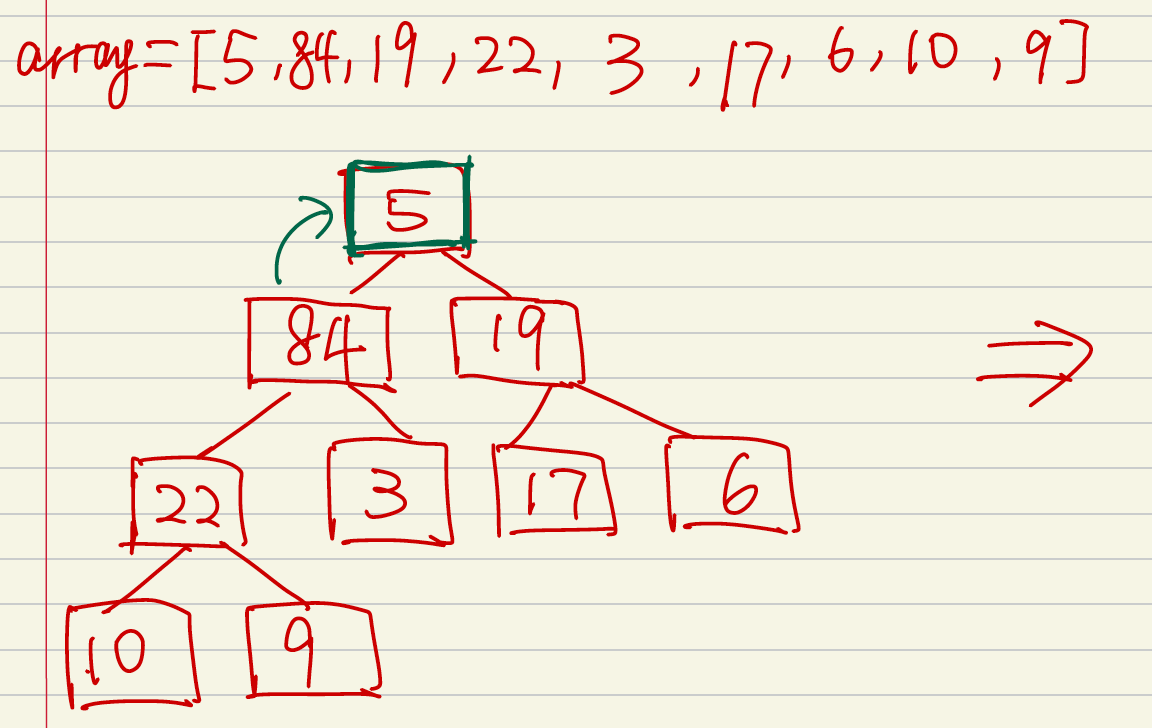 array=[5,84,19,22,3,17,6,10,9]
5
84 19
22 3 17 6
10 9